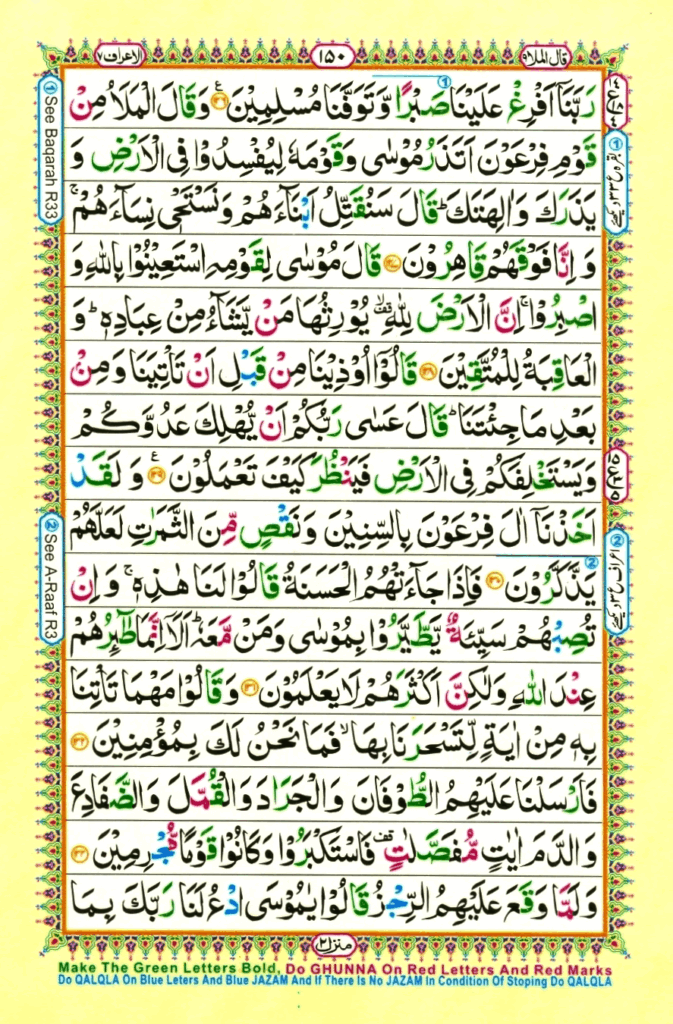 قال الملا ٩
١٥٠
الاعراف ٧
رَبَّنَاۤ اَفْرِغْ عَلَيْنَا صَبْرًا وَّ تَوَفَّنَا مُسْلِمِيْنَ ۝۱۲۶ وَ قَالَ الْمَلَاُ مِنْ
قَوْمِ فِرْعَوْنَ اَتَذَرُ مُوْسٰى وَ قَوْمَهٗ لِيُفْسِدُوْا فِی الْاَرْضِ وَ
يَذَرَكَ وَ اٰلِهَتَكَ ؕ قَالَ سَنُقَتِّلُ اَبْنَآءَهُمْ وَ نَسْتَحْیٖ نِسَآءَهُمْ ۚ
وَ اِنَّا فَوْقَهُمْ قٰهِرُوْنَ ۝۱۲۷ قَالَ مُوْسٰى لِقَوْمِهِ اسْتَعِيْنُوْا بِاللّٰهِ وَ
اصْبِرُوْا ۚ اِنَّ الْاَرْضَ لِلّٰهِ ۙ۫ يُوْرِثُهَا مَنْ يَّشَآءُ مِنْ عِبَادِهٖ ؕ وَ
الْعَاقِبَةُ لِلْمُتَّقِيْنَ ۝۱۲۸ قَالُوْۤا اُوْذِيْنَا مِنْ قَبْلِ اَنْ تَاْتِيَنَا وَ مِنْۢ
بَعْدِ مَا جِئْتَنَا ؕ قَالَ عَسٰى رَبُّكُمْ اَنْ يُّهْلِكَ عَدُوَّكُمْ
وَ يَسْتَخْلِفَكُمْ فِی الْاَرْضِ فَيَنْظُرَ كَيْفَ تَعْمَلُوْنَ ۝۱۲۹ وَ لَقَدْ
اَخَذْنَاۤ اٰلَ فِرْعَوْنَ بِالسِّنِيْنَ وَ نَقْصٍ مِّنَ الثَّمَرٰتِ لَعَلَّهُمْ
يَذَّكَّرُوْنَ ۝۱۳۰ فَاِذَا جَآءَتْهُمُ الْحَسَنَةُ قَالُوْا لَنَا هٰذِهٖ ۚ وَ اِنْ
تُصِبْهُمْ سَيِّئَةٌ يَّطَّيَّرُوْا بِمُوْسٰى وَ مَنْ مَّعَهٗ ؕ اَلَاۤ اِنَّمَا طٰٓئِرُهُمْ
عِنْدَ اللّٰهِ وَ لٰكِنَّ اَكْثَرَهُمْ لَا يَعْلَمُوْنَ ۝۱۳۱ وَ قَالُوْا مَهْمَا تَاْتِنَا
بِهٖ مِنْ اٰيَةٍ لِّتَسْحَرَنَا بِهَا ۙ فَمَا نَحْنُ لَكَ بِمُؤْمِنِيْنَ ۝۱۳۲
فَاَرْسَلْنَا عَلَيْهِمُ الطُّوْفَانَ وَ الْجَرَادَ وَ الْقُمَّلَ وَ الضَّفَادِعَ
وَ الدَّمَ اٰيٰتٍ مُّفَصَّلٰتٍ ۫ فَاسْتَكْبَرُوْا وَ كَانُوْا قَوْمًا مُّجْرِمِيْنَ ۝۱۳۳
وَ لَمَّا وَقَعَ عَلَيْهِمُ الرِّجْزُ قَالُوْا يٰمُوْسَى ادْعُ لَنَا رَبَّكَ بِمَا
منزل ٢
① See Baqarah R33
② See A-Raaf R3
Make The Green Letters Bold, Do GHUNNA On Red Letters And Red Marks
Do QALQLA On Blue Leters And Blue JAZAM And If There Is No JAZAM In Condition Of Stoping Do QALQLA